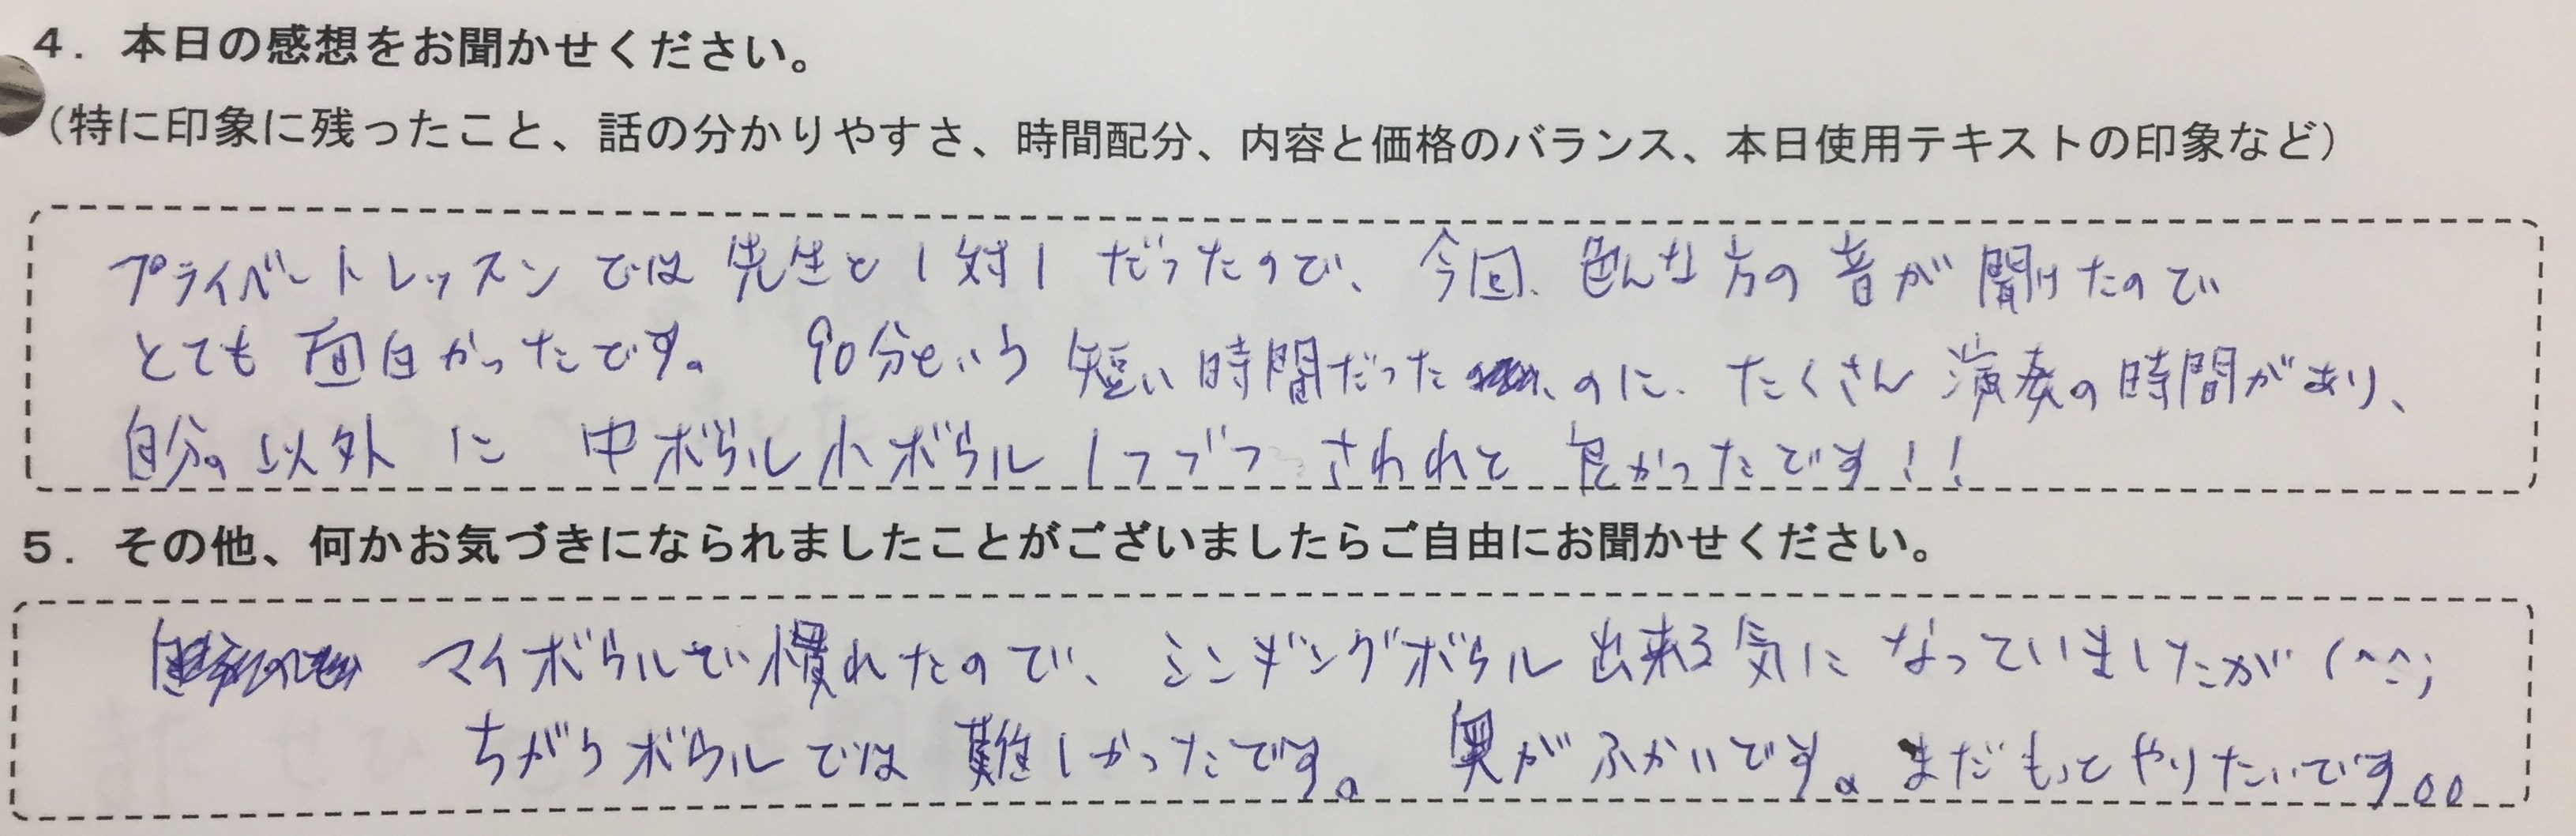 ４．本日の感想をお聞かせください。
（特に印象に残ったこと、話の分かりやすさ、時間配分、内容と価格のバランス、本日使用テキストの印象など）
プライベートレッスンでは先生と1対1だったので、今回、色んな方の音が聞けたので
とても面白かったです。 90分という短い時間だったのに、たくさん演奏の時間があり、
自分の以外に中ボウル小ボウル1つづつさわれて良かったです!!
５．その他、何かお気づきになられましたことがございましたらご自由にお聞かせください。
マイボウルで慣れたので、シンギングボウル出来る気になっていましたが(^^;
ちがうボウルでは難しかったです。 奥がふかいです。まだもっとやりたいです。。